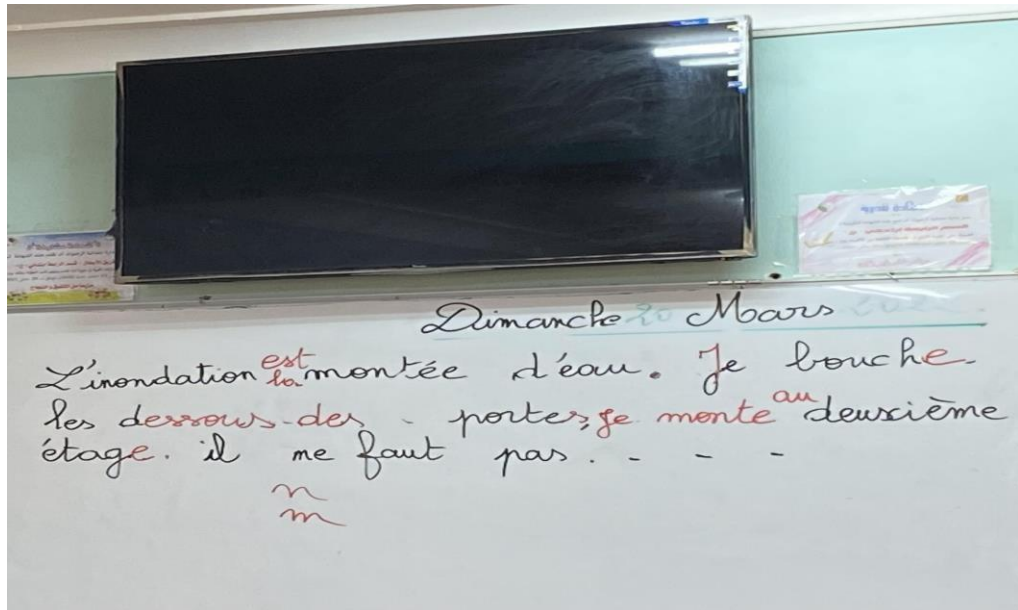 Dimanche 20 Mars
L'inondation est la montée d'éau. Je bouche
les dessous des portes, je monte au deuxième
étage. il me faut pas. - - -
n
m